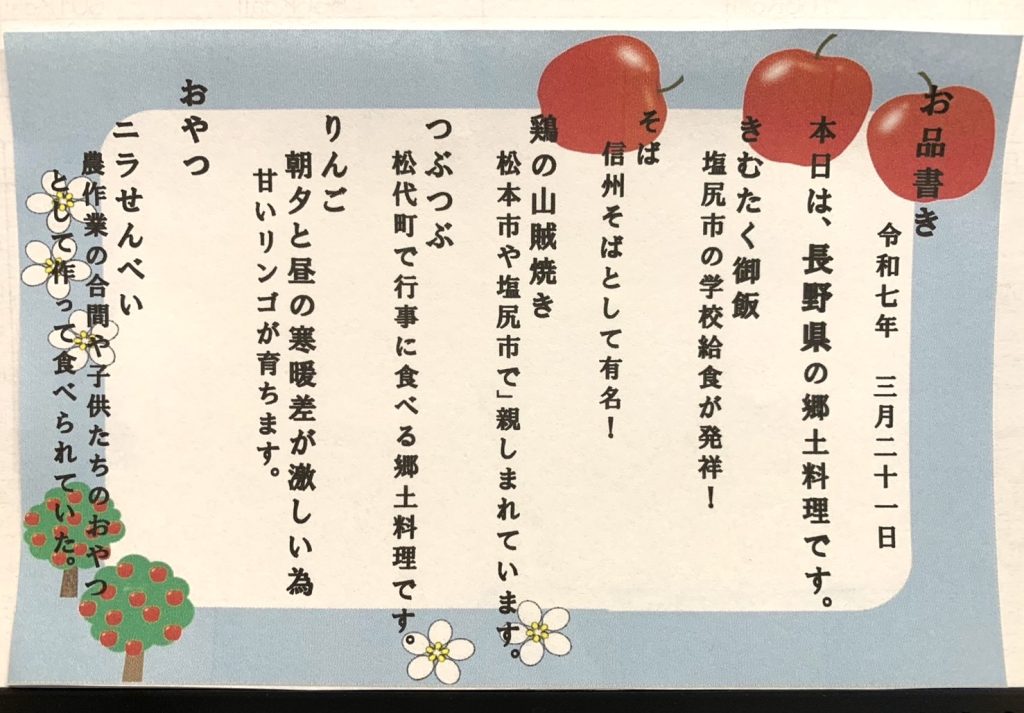 お品書き
令和七年 三月二十一日
本日は、長野県の郷土料理です。
きむたく御飯
塩尻市の学校給食が発祥!
そば
信州そばとして有名!
鶏の山賊焼き
松本市や塩尻市で」親しまれています。
つぶつぶ
松代町で行事に食べる郷土料理です。
りんご
朝夕と昼の寒暖差が激しい為
甘いリンゴが育ちます。
おやつ
ニラせんべい
農作業の合間や子供たちのおやつ
として作って食べられていた。